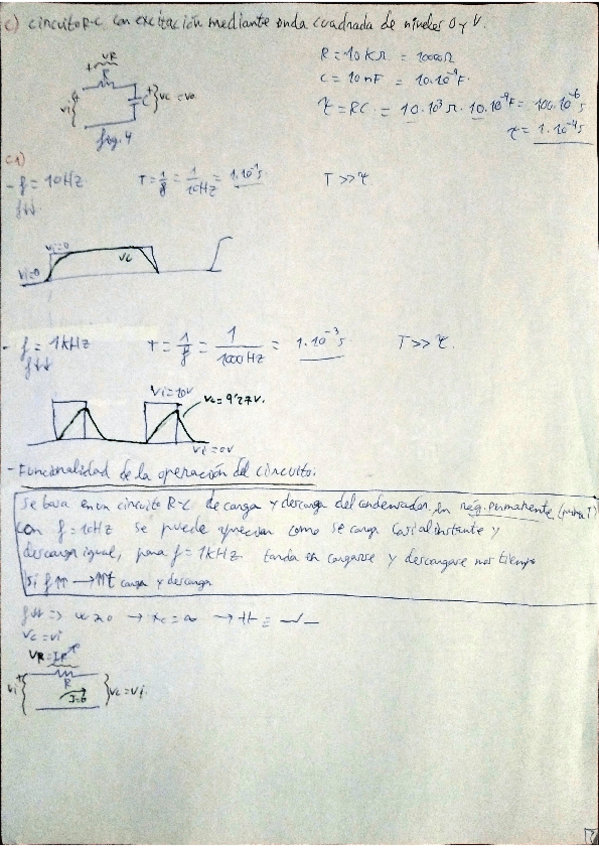 c) circuito R-C con excitación mediante onda cuadrada de niveles 0 y V.
+ VR
R
Vi C + VC = Vo
fig. 4
R = 10 KΩ = 10000Ω
C = 10 nF = 10·10⁻⁹F.
τ = RC = 10·10³Ω·10·10⁻⁹F = 100·10⁻⁶
τ = 1·10⁻⁴s
c1)
- f = 10Hz T = 1/f = 1/10Hz = 1·10⁻¹s T >> τ
f↓↓
Vi=0
Vi=0 VC
- f = 1KHz T = 1/f = 1/1000Hz = 1·10⁻³s T >> τ.
f↓↓
Vi=10V
VC = 9'27V.
Vi=0V
- Funcionalidad de la operación del circuito.
Se basa en un circuito R-C de carga y descarga del condensador. En rég. permanente
Con f=10Hz se puede apreciar como se carga casi al instante y
descarga igual, para f=1KHz tarda en cargarse y descargarse mas tiempo
Si f↑↑ → ↑↑t carga y descarga
VC = Vi
VR = I·R
+ R
Vi I=0 VC = Vi